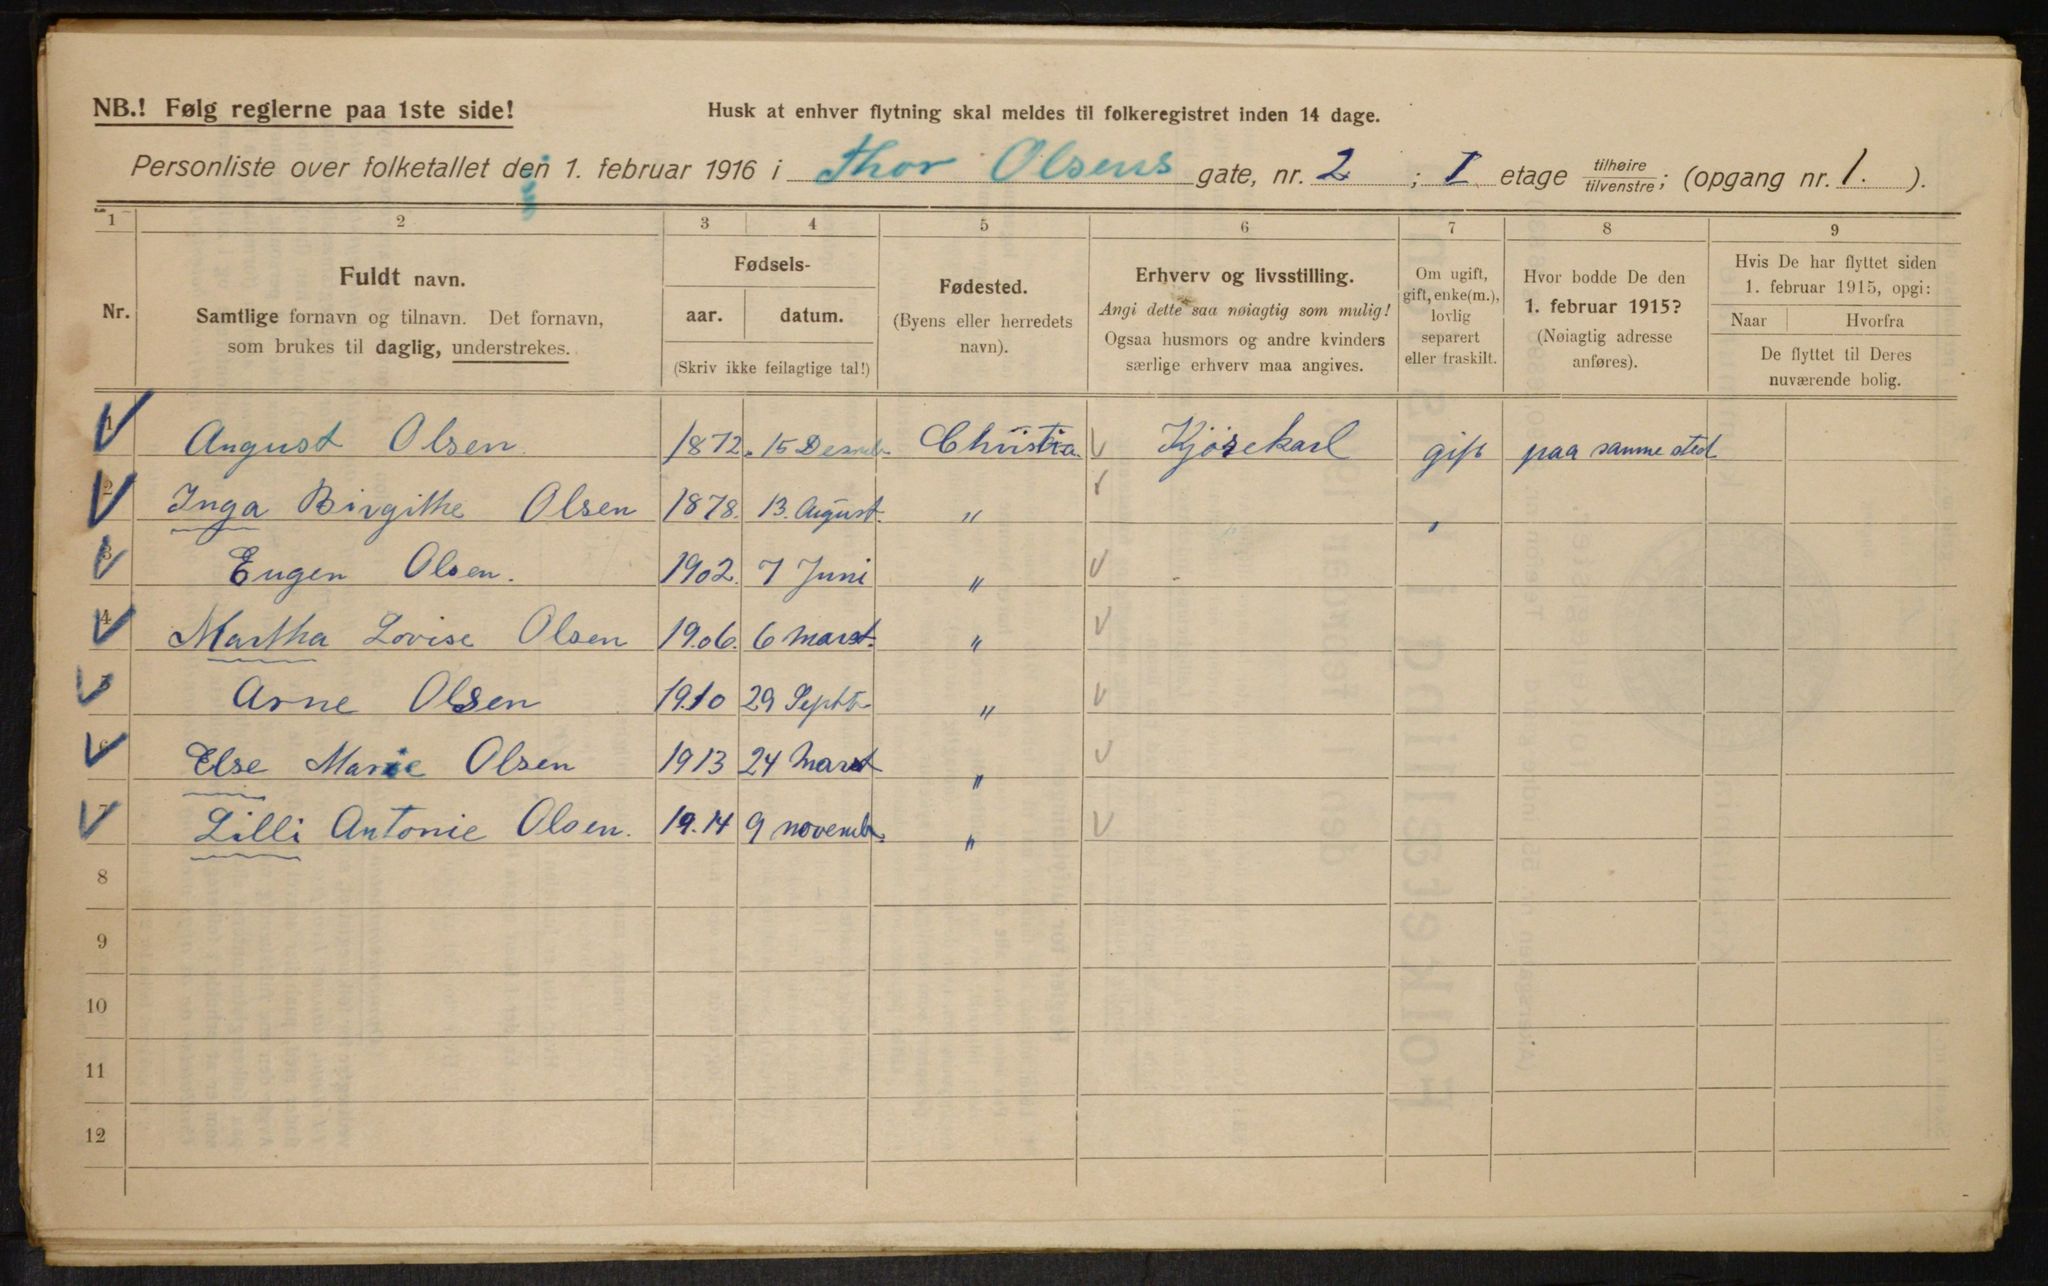 NB.! Følg reglerne paa 1ste side!
Husk at enhver flytning skal meldes til folkeregistret inden 14 dage.
Personliste over folketallet den 1. februar 1916 i Thor Olsens gate, nr. 2 ; I etage tilhøire/tilvenstre; (opgang nr. 1. ).
1 2 3 4 5 6 7 8 9
Nr.
Fuldt navn.
Samtlige fornavn og tilnavn. Det fornavn,
som brukes til daglig, understrekes.
Fødsels-
aar. datum.
(Skriv ikke feilagtige tal!)
Fødested.
(Byens eller herredets
navn).
Erhverv og livsstilling.
Angi dette saa nøiagtig som mulig!
Ogsaa husmors og andre kvinders
særlige erhverv maa angives.
Om ugift,
gift, enke(m.),
lovlig
separert
eller fraskilt.
Hvor bodde De den
1. februar 1915?
(Nøiagtig adresse
anføres).
Hvis De har flyttet siden
1. februar 1915, opgi:
Naar Hvorfra
De flyttet til Deres
nuværende bolig.
1 August Olsen 1872. 15 Desemb. Christia. Kjørekarl gift paa samme sted
2 Inga Birgithe Olsen 1878. 13. August. "
3 Eugen Olsen. 1902. 7 Juni "
4 Martha Lovise Olsen 1906. 6 Marst. "
5 Arne Olsen 1910 29 Septb "
6 Else Marie Olsen 1913 24 Marst "
7 Lilli Antonie Olsen. 19.14 9 novemb. "
8
9
10
11
12